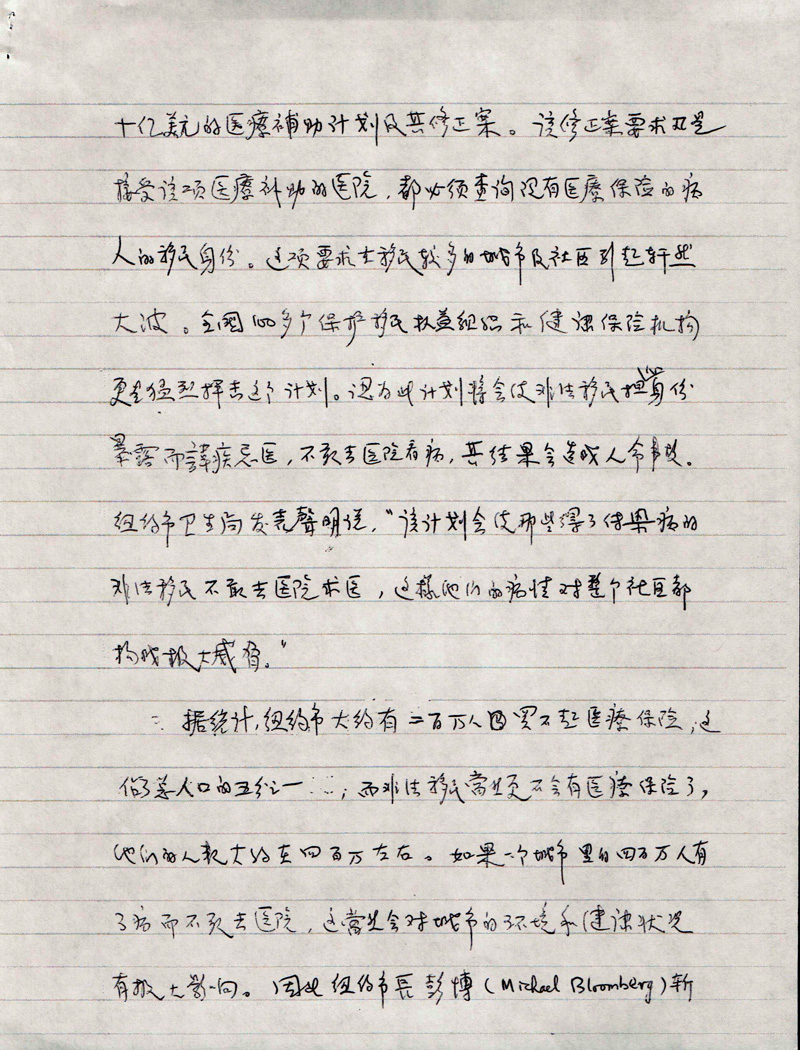 十亿美元的医療補助计划及其修正案。该修正案要求凡是
接受该项医療补助的医院，都必须查询没有医療保险的病
人的移民身份。这项要求在移民较多的城市及社区引起轩然
大波。全國100多个保护移民权益组织和健康保险机构
更是猛烈抨击这个计划。認为此计划将会使非法移民担心身份
暴露而諱疾忌医，不敢去医院看病，其结果会造成人命事故。
纽约市卫生局发表聲明说，“该计划会使那些得了传染病的
非法移民不敢去医院求医，这样他们的病情对整个社区都
构成极大威胁。”
据统计，纽约市大约有二百万人因買不起医療保险，这
佔了总人口的五分之一；而非法移民當然更不会有医療保险了，
他们的人数大约在四百万左右。如果一个城市里的四百万人有
了病而不敢去医院，这當然会对城市的环境和健康状况
有极大影响。因此纽约市長彭博（Michael Bloomberg）斩